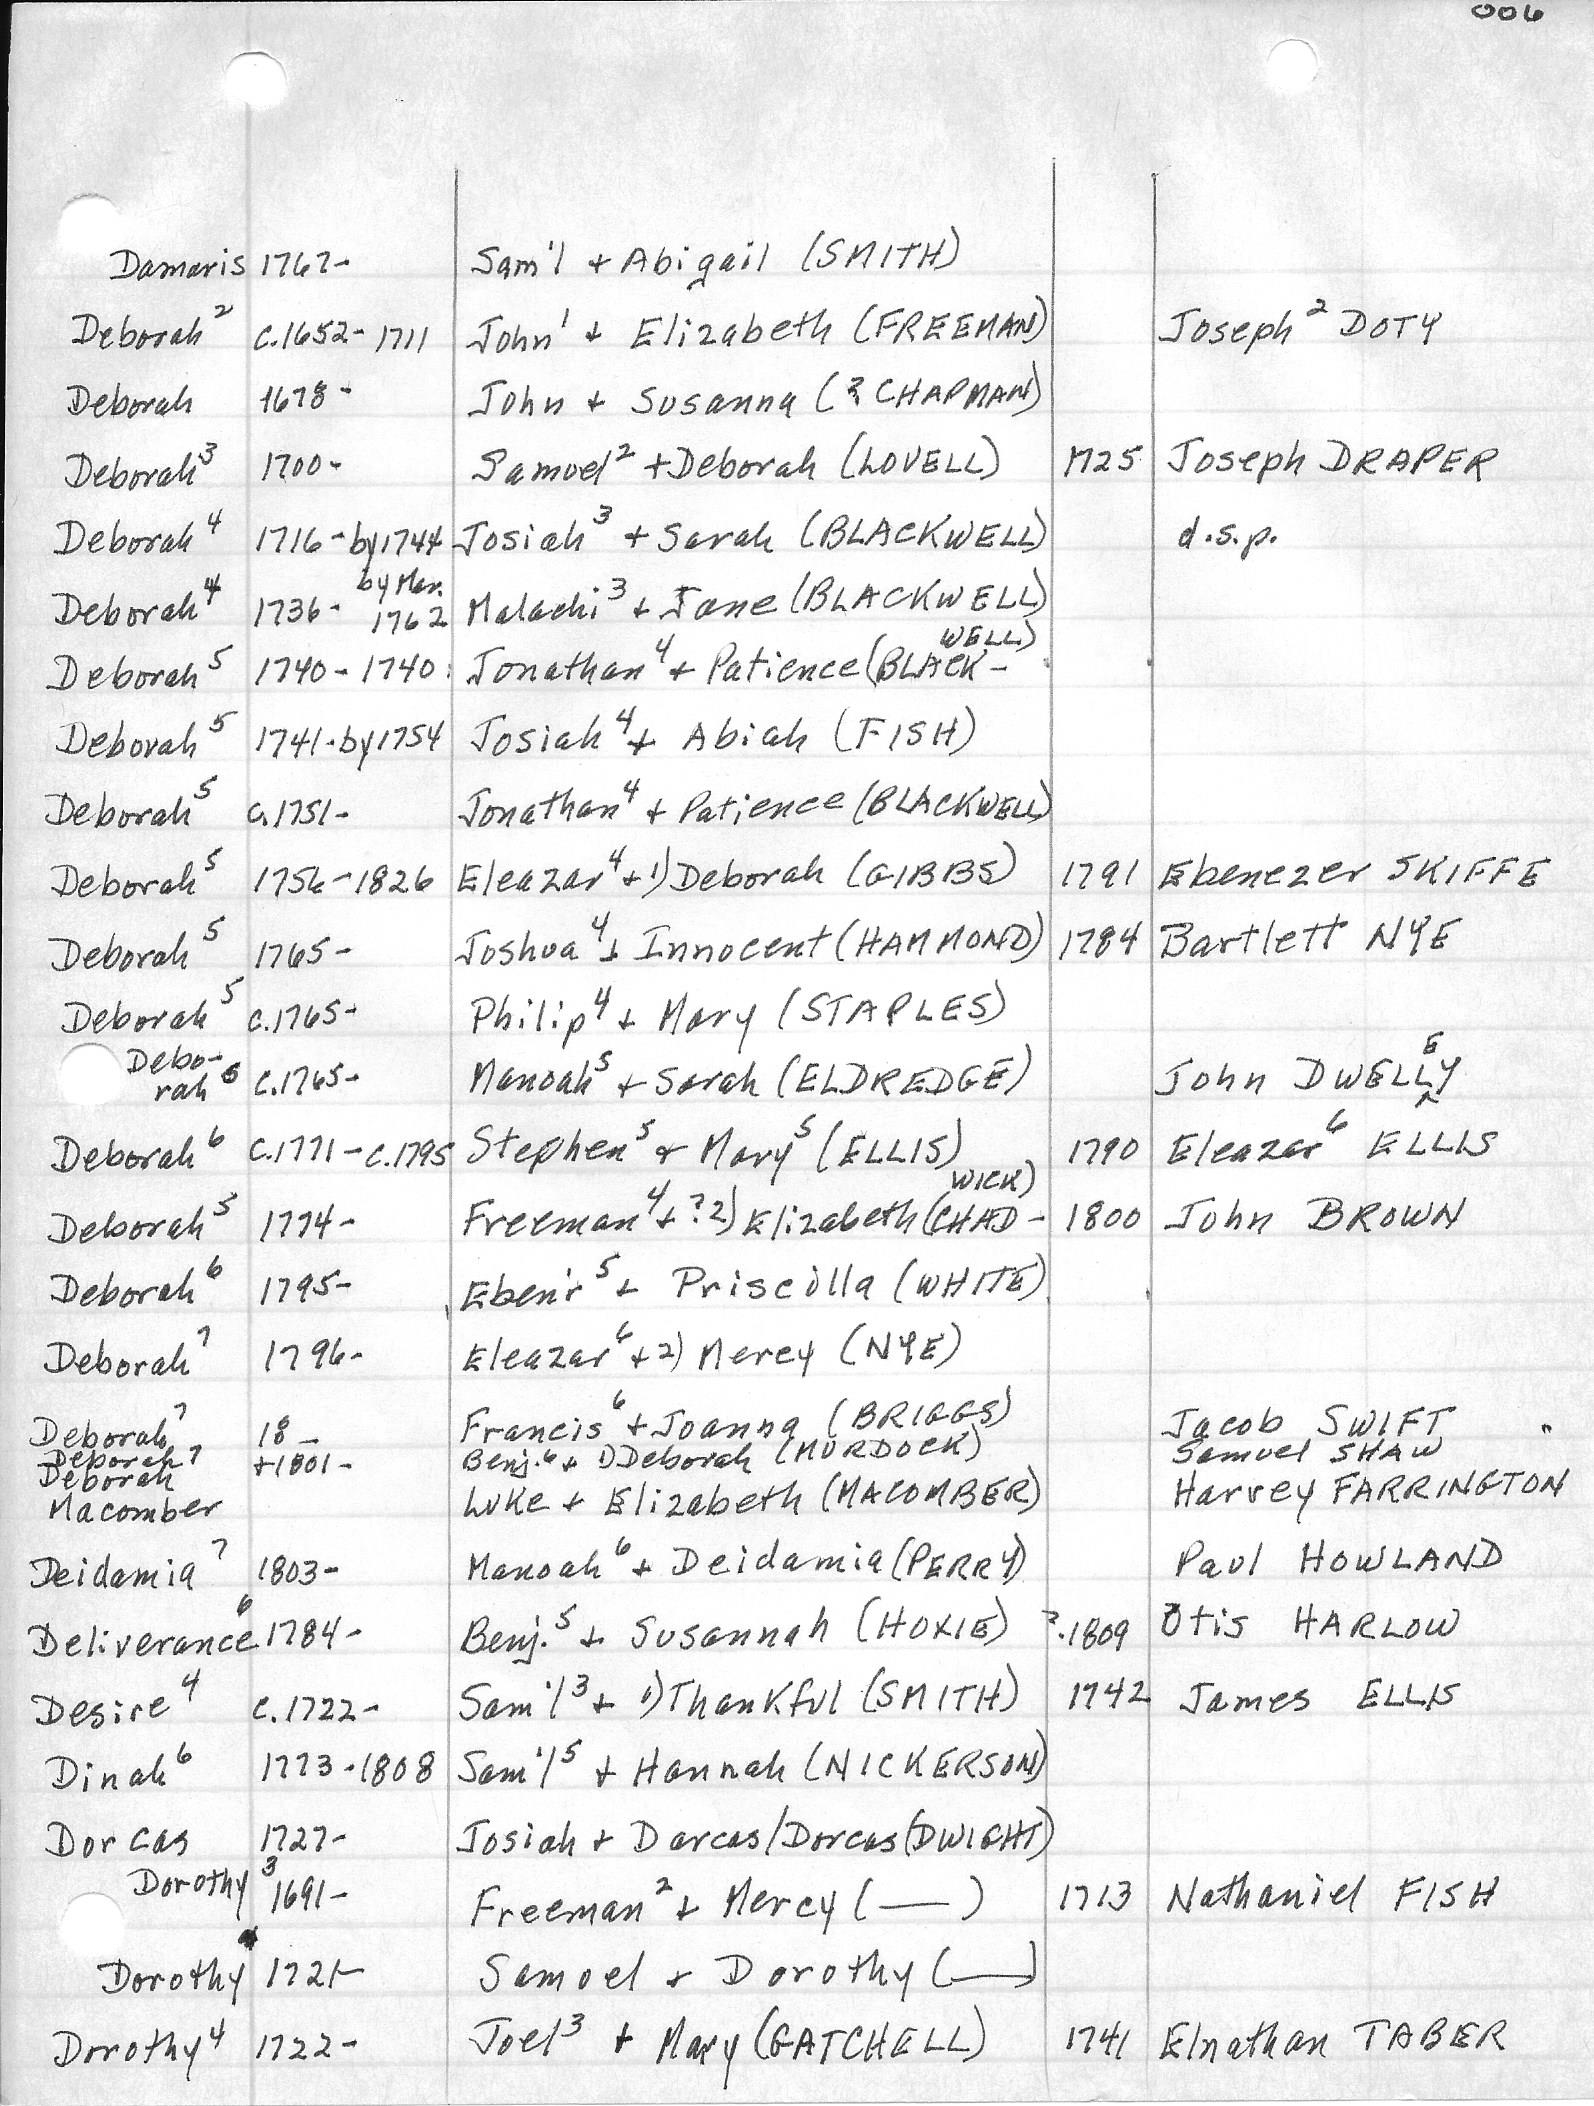 006
Damaris 1767- Sam'l + Abigail (SMITH)
Deborah² c.1652-1711 John¹ + Elizabeth (FREEMAN) Joseph² DOTY
Deborah 1678- John + Susanna (? CHAPMAN)
Deborah³ 1700- Samuel² + Deborah (LOVELL) 1725 Joseph DRAPER
Deborah⁴ 1716-by1744 Josiah³ + Sarah (BLACKWELL) d.s.p.
by Mar.
Deborah⁴ 1736- 1762 Malachi³ + Jane (BLACKWELL)
WELL)
Deborah⁵ 1740-1740 Jonathan⁴ + Patience (BLACK-
Deborah⁵ 1741-by1754 Josiah⁴ + Abiah (FISH)
Deborah⁵ c.1751- Jonathan⁴ + Patience (BLACKWELL)
Deborah⁵ 1756-1826 Eleazar⁴ + 1) Deborah (GIBBS) 1791 Ebenezer SKIFFE
Deborah⁵ 1765- Joshua⁴ + Innocent (HAMMOND) 1784 Bartlett NYE
Deborah⁵ c.1765- Philip⁴ + Mary (STAPLES)
Debo-
rah⁶ c.1765- Manoah⁵ + Sarah (ELDREDGE) John DWELLEY
Deborah⁶ c.1771-c.1795 Stephen⁵ + Mary⁵ (ELLIS) 1790 Eleazar⁶ ELLIS
WICK)
Deborah⁵ 1774- Freeman⁴ + ?2) Elizabeth (CHAD- 1800 John BROWN
Deborah⁶ 1795- Eben'r⁵ + Priscilla (WHITE)
Deborah⁷ 1796- Eleazar⁶ + 2) Mercy (NYE)
Deborah⁷ 18 - Francis⁶ + Joanna (BRIGGS) Jacob SWIFT
Deborah⁷ +1801- Benj.⁶ + 1) Deborah (MURDOCK) Samuel SHAW
Deborah
Macomber Luke + Elizabeth (MACOMBER) Harvey FARRINGTON
Deidamia⁷ 1803- Manoah⁶ + Deidamia (PERRY) Paul HOWLAND
Deliverance⁶ 1784- Benj.⁵ + Susannah (HOXIE) ?.1809 Otis HARLOW
Desire⁴ c.1722- Sam'l³ + 1) Thankful (SMITH) 1742 James ELLIS
Dinah⁶ 1773-1808 Sam'l⁵ + Hannah (NICKERSON)
Dorcas 1727- Josiah + Darcas/Dorcas (DWIGHT)
Dorothy³ 1691- Freeman² + Mercy (—) 1713 Nathaniel FISH
Dorothy 1721- Samuel + Dorothy (—)
Dorothy⁴ 1722- Joel³ + Mary (GATCHELL) 1741 Elnathan TABER